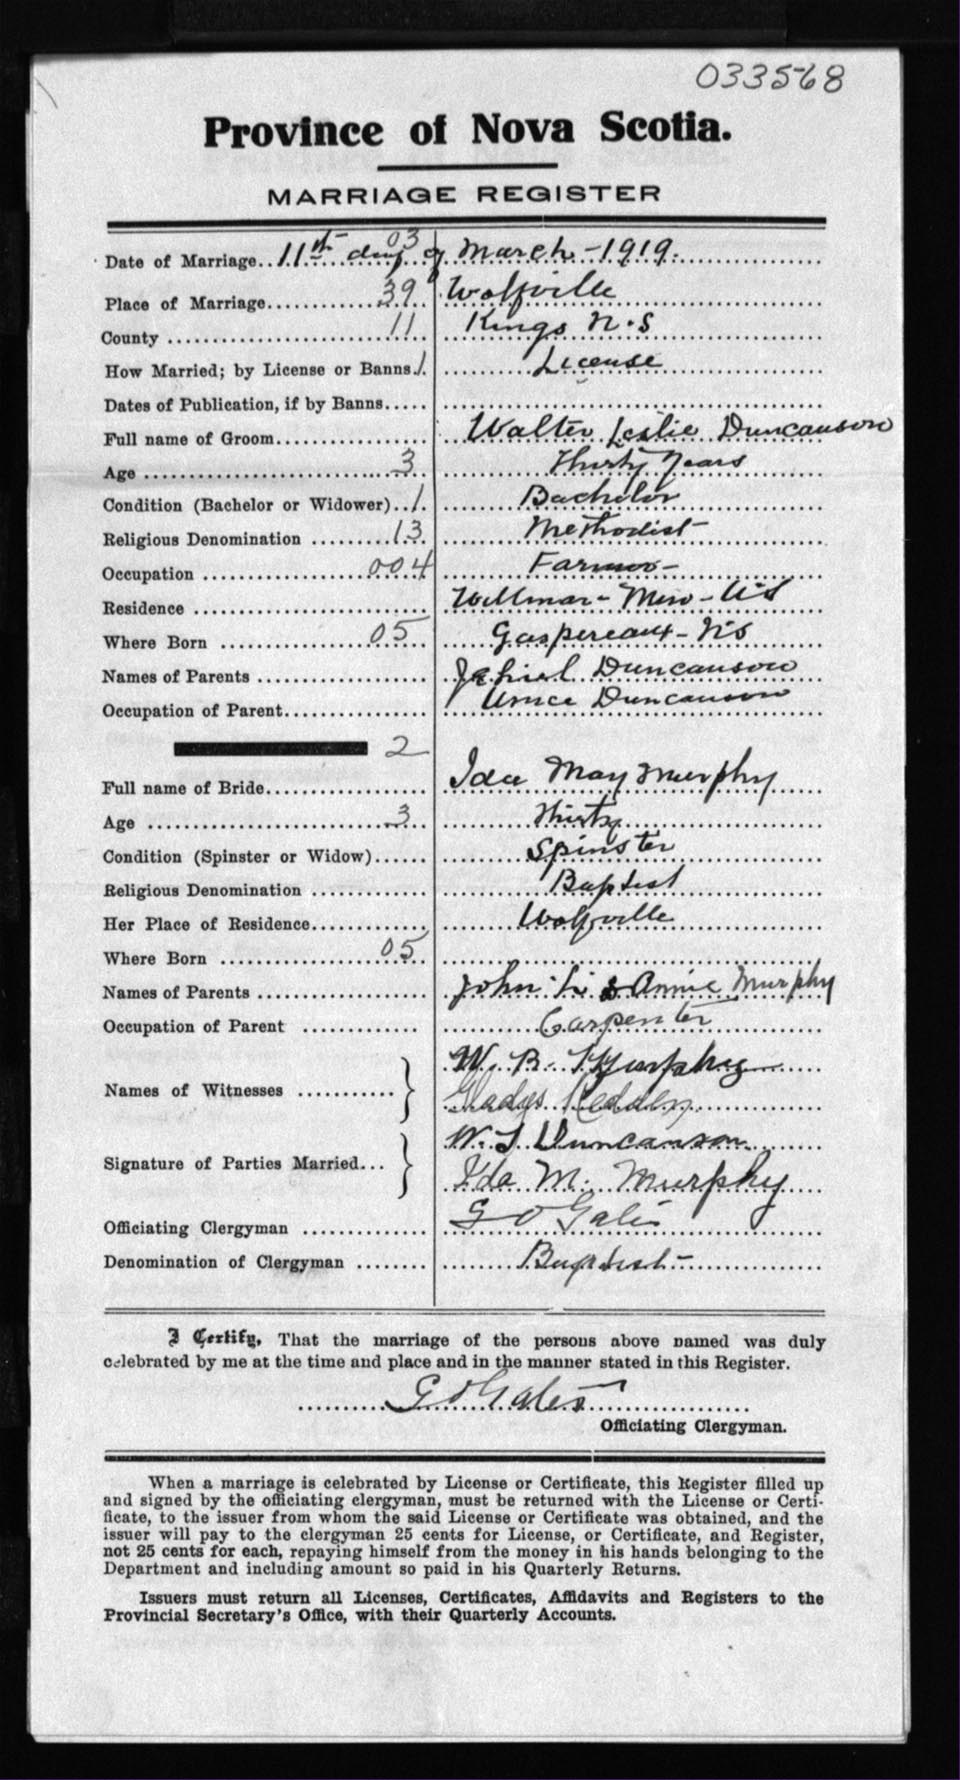 033568
Province of Nova Scotia.
MARRIAGE REGISTER
Date of Marriage.. 11th day 03 of March - 1919.
Place of Marriage 39 Wolfville
County 11 Kings N.S
How Married; by License or Banns. 1 License
Dates of Publication, if by Banns
Full name of Groom Walter Leslie Duncanson
Age 3 Thirty Years
Condition (Bachelor or Widower) 1 Bachelor
Religious Denomination 13 Methodist
Occupation 004 Farmer
Residence Willmar - Minn - U.S
Where Born 05 Gaspereaux - N.S
Names of Parents Jehiel Duncanson
Occupation of Parent Duncanson
2
Full name of Bride Ida May Murphy
Age 3 Thirty
Condition (Spinster or Widow) Spinster
Religious Denomination Baptist
Her Place of Residence Wolfville
Where Born 05
Names of Parents John L & Annie Murphy
Occupation of Parent Carpenter
W. B. Murphy
Names of Witnesses
Gladys Redden
W. L Duncanson
Signature of Parties Married...
Ida M. Murphy
Officiating Clergyman G O Gates
Denomination of Clergyman Baptist -
I Certify, That the marriage of the persons above named was duly
celebrated by me at the time and place and in the manner stated in this Register.
G O Gates
Officiating Clergyman.
When a marriage is celebrated by License or Certificate, this Register filled up
and signed by the officiating clergyman, must be returned with the License or Certi-
ficate, to the issuer from whom the said License or Certificate was obtained, and the
issuer will pay to the clergyman 25 cents for License, or Certificate, and Register,
not 25 cents for each, repaying himself from the money in his hands belonging to the
Department and including amount so paid in his Quarterly Returns.
Issuers must return all Licenses, Certificates, Affidavits and Registers to the
Provincial Secretary's Office, with their Quarterly Accounts.